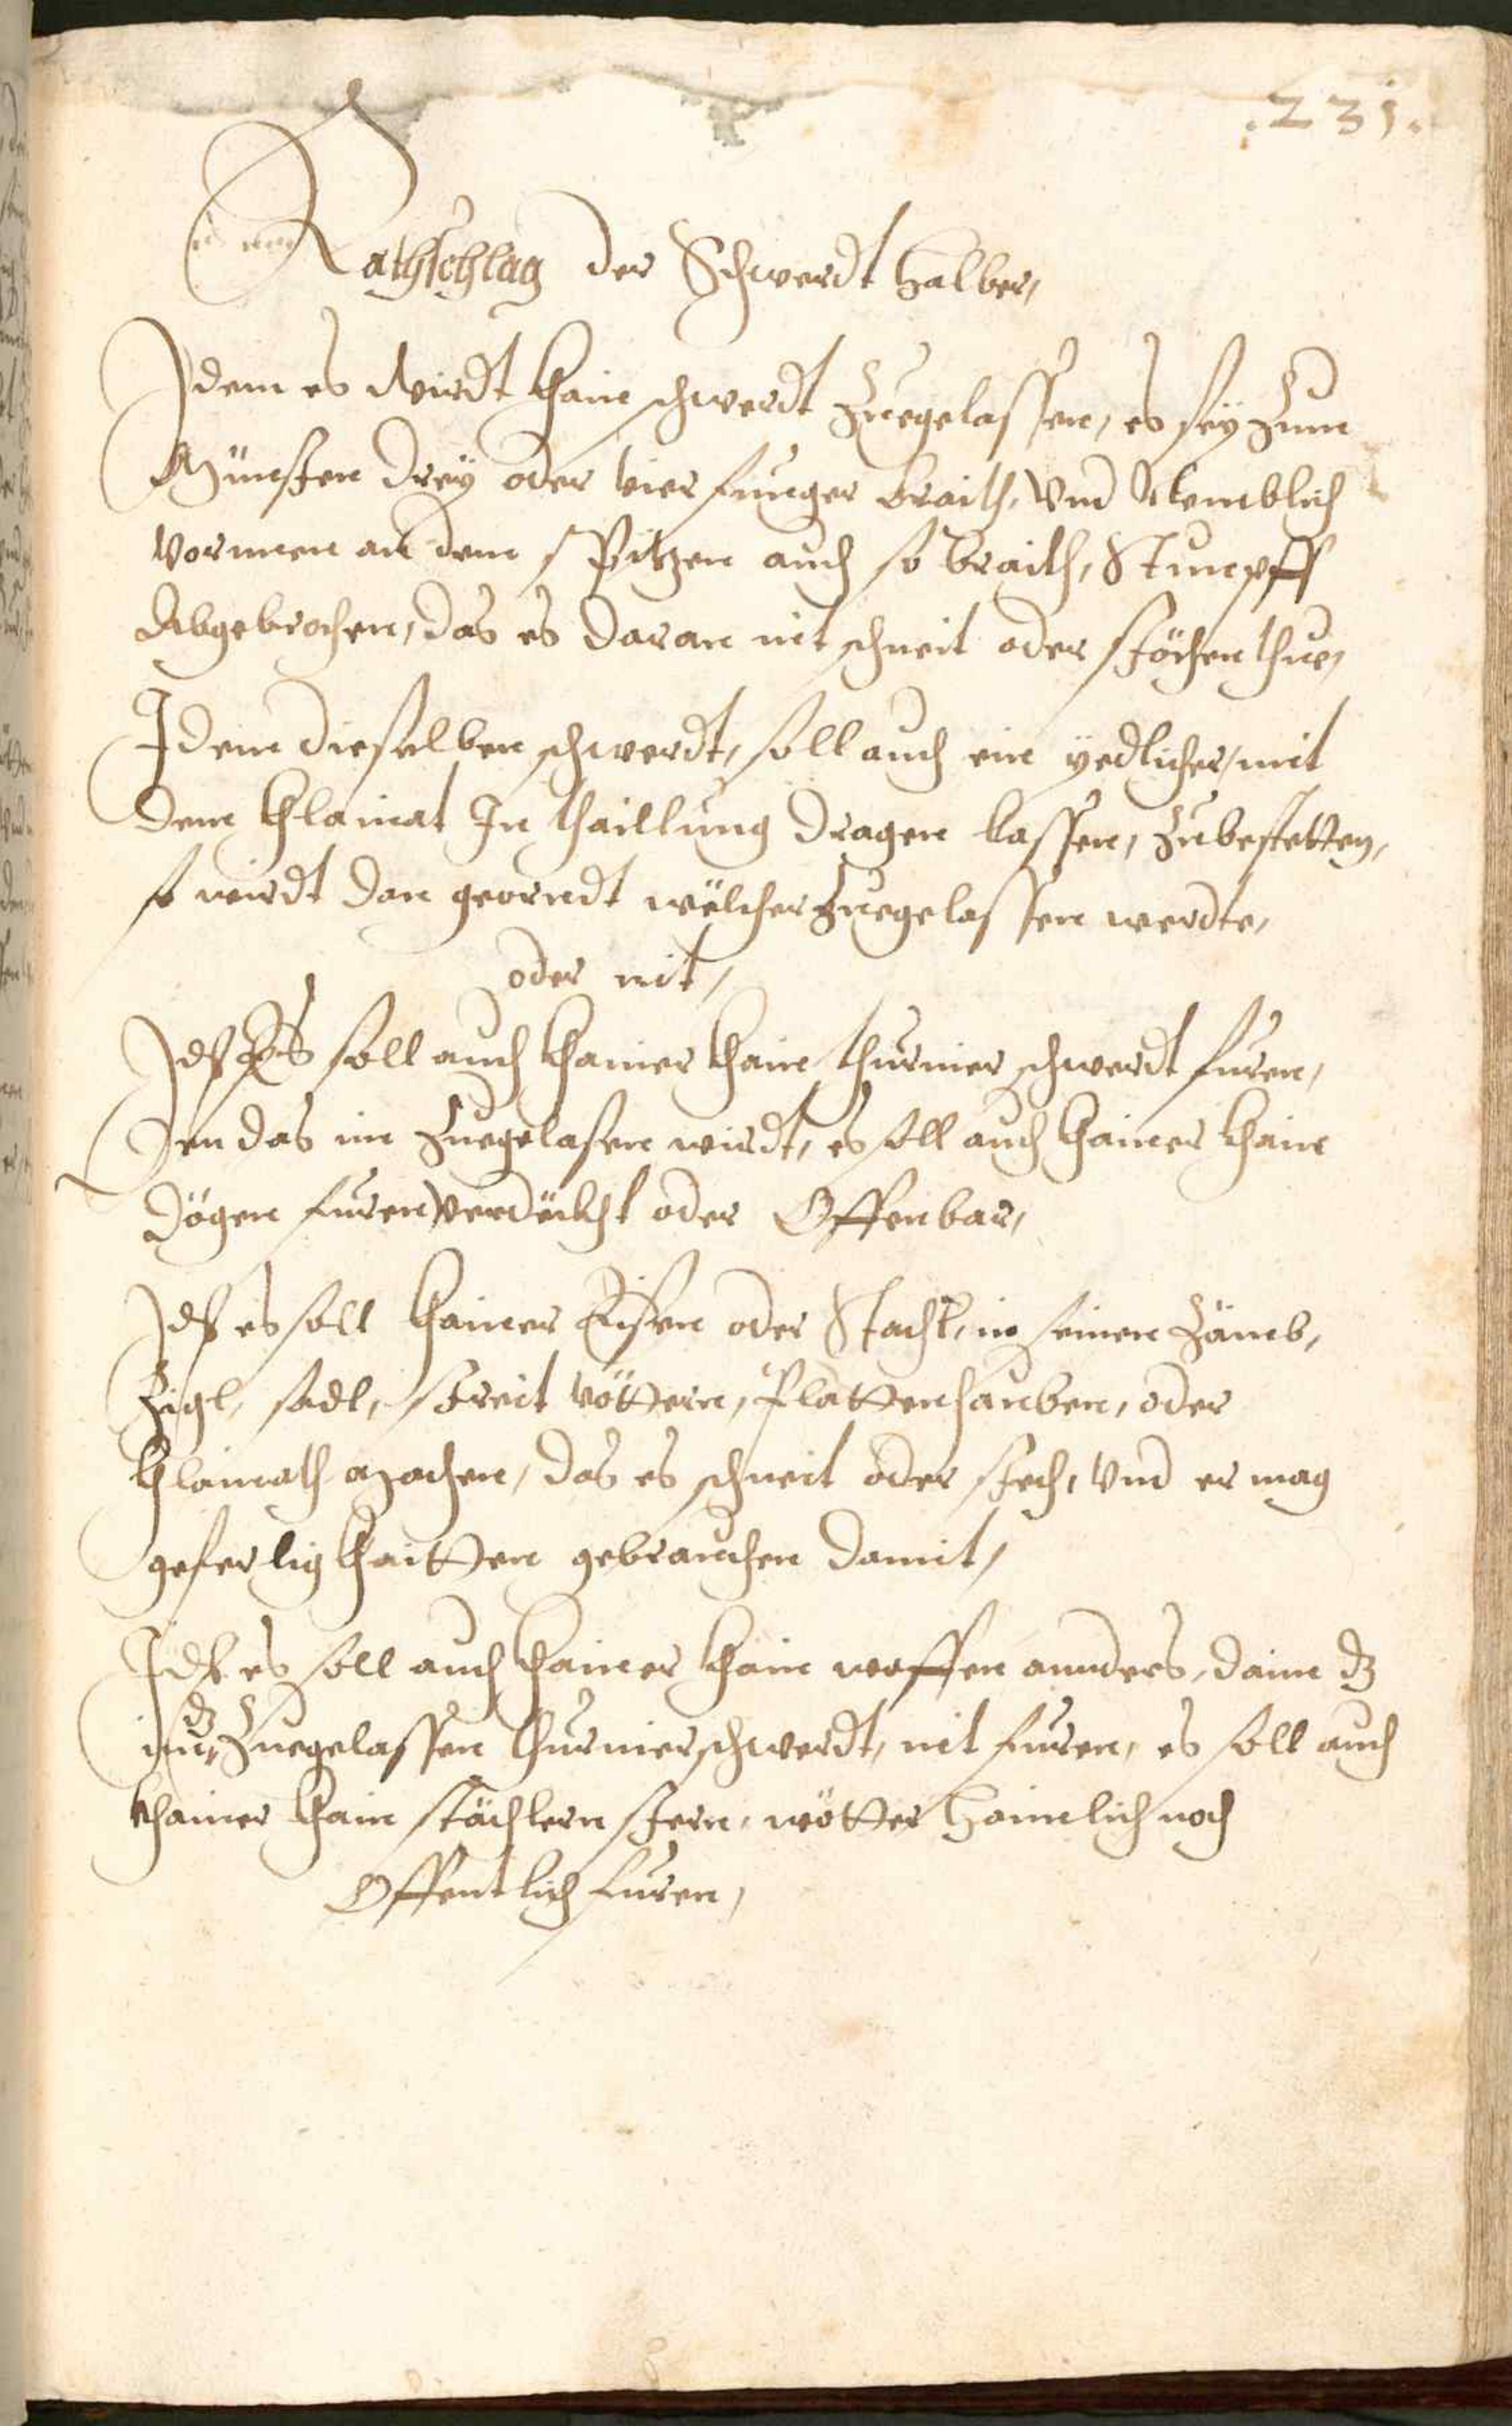 .231.
Rathschlag der Schwerdt halber,
Idem es wirdt khain schwerdt zuegelassen, es seÿ zum
Münsten dreÿ oder vier finnger braith, vnd Nemblich
vornnen an dem spitzen auch so braith, Stumpff
Abgebrochen, das es daran nit schneit oder stöchen thue,
Idem dieselben schwerdt, soll auch ein yedlicher, mit
dem khlainat In thaillung dragen lassen, zubestetten,
so wirdt dan georndt wëlcher zuegelassen werdte,
oder nit,
Id Es soll auch khainer khain thurnier schwerdt furen,
den das im zuegelasen wirdt, es soll auch khainer khain
dögen furen verdëckht oder Offenbar,
Id es soll khainer Eissen oder Stachl, in seinen zämb,
Zigl, sadl, streit Plattenhauben, oder
khlainath machen, das es schneit oder stech, vnd er mag
geferligkhaitten gebrauchen damit,
Id es soll auch khainer khain waffen annders, dann dz
dz
im, zuegelassen thurnierschwerdt, nit furen, es soll auch
khainer khain stächlern stern, wötter haimlich noch
Offentlich furen,